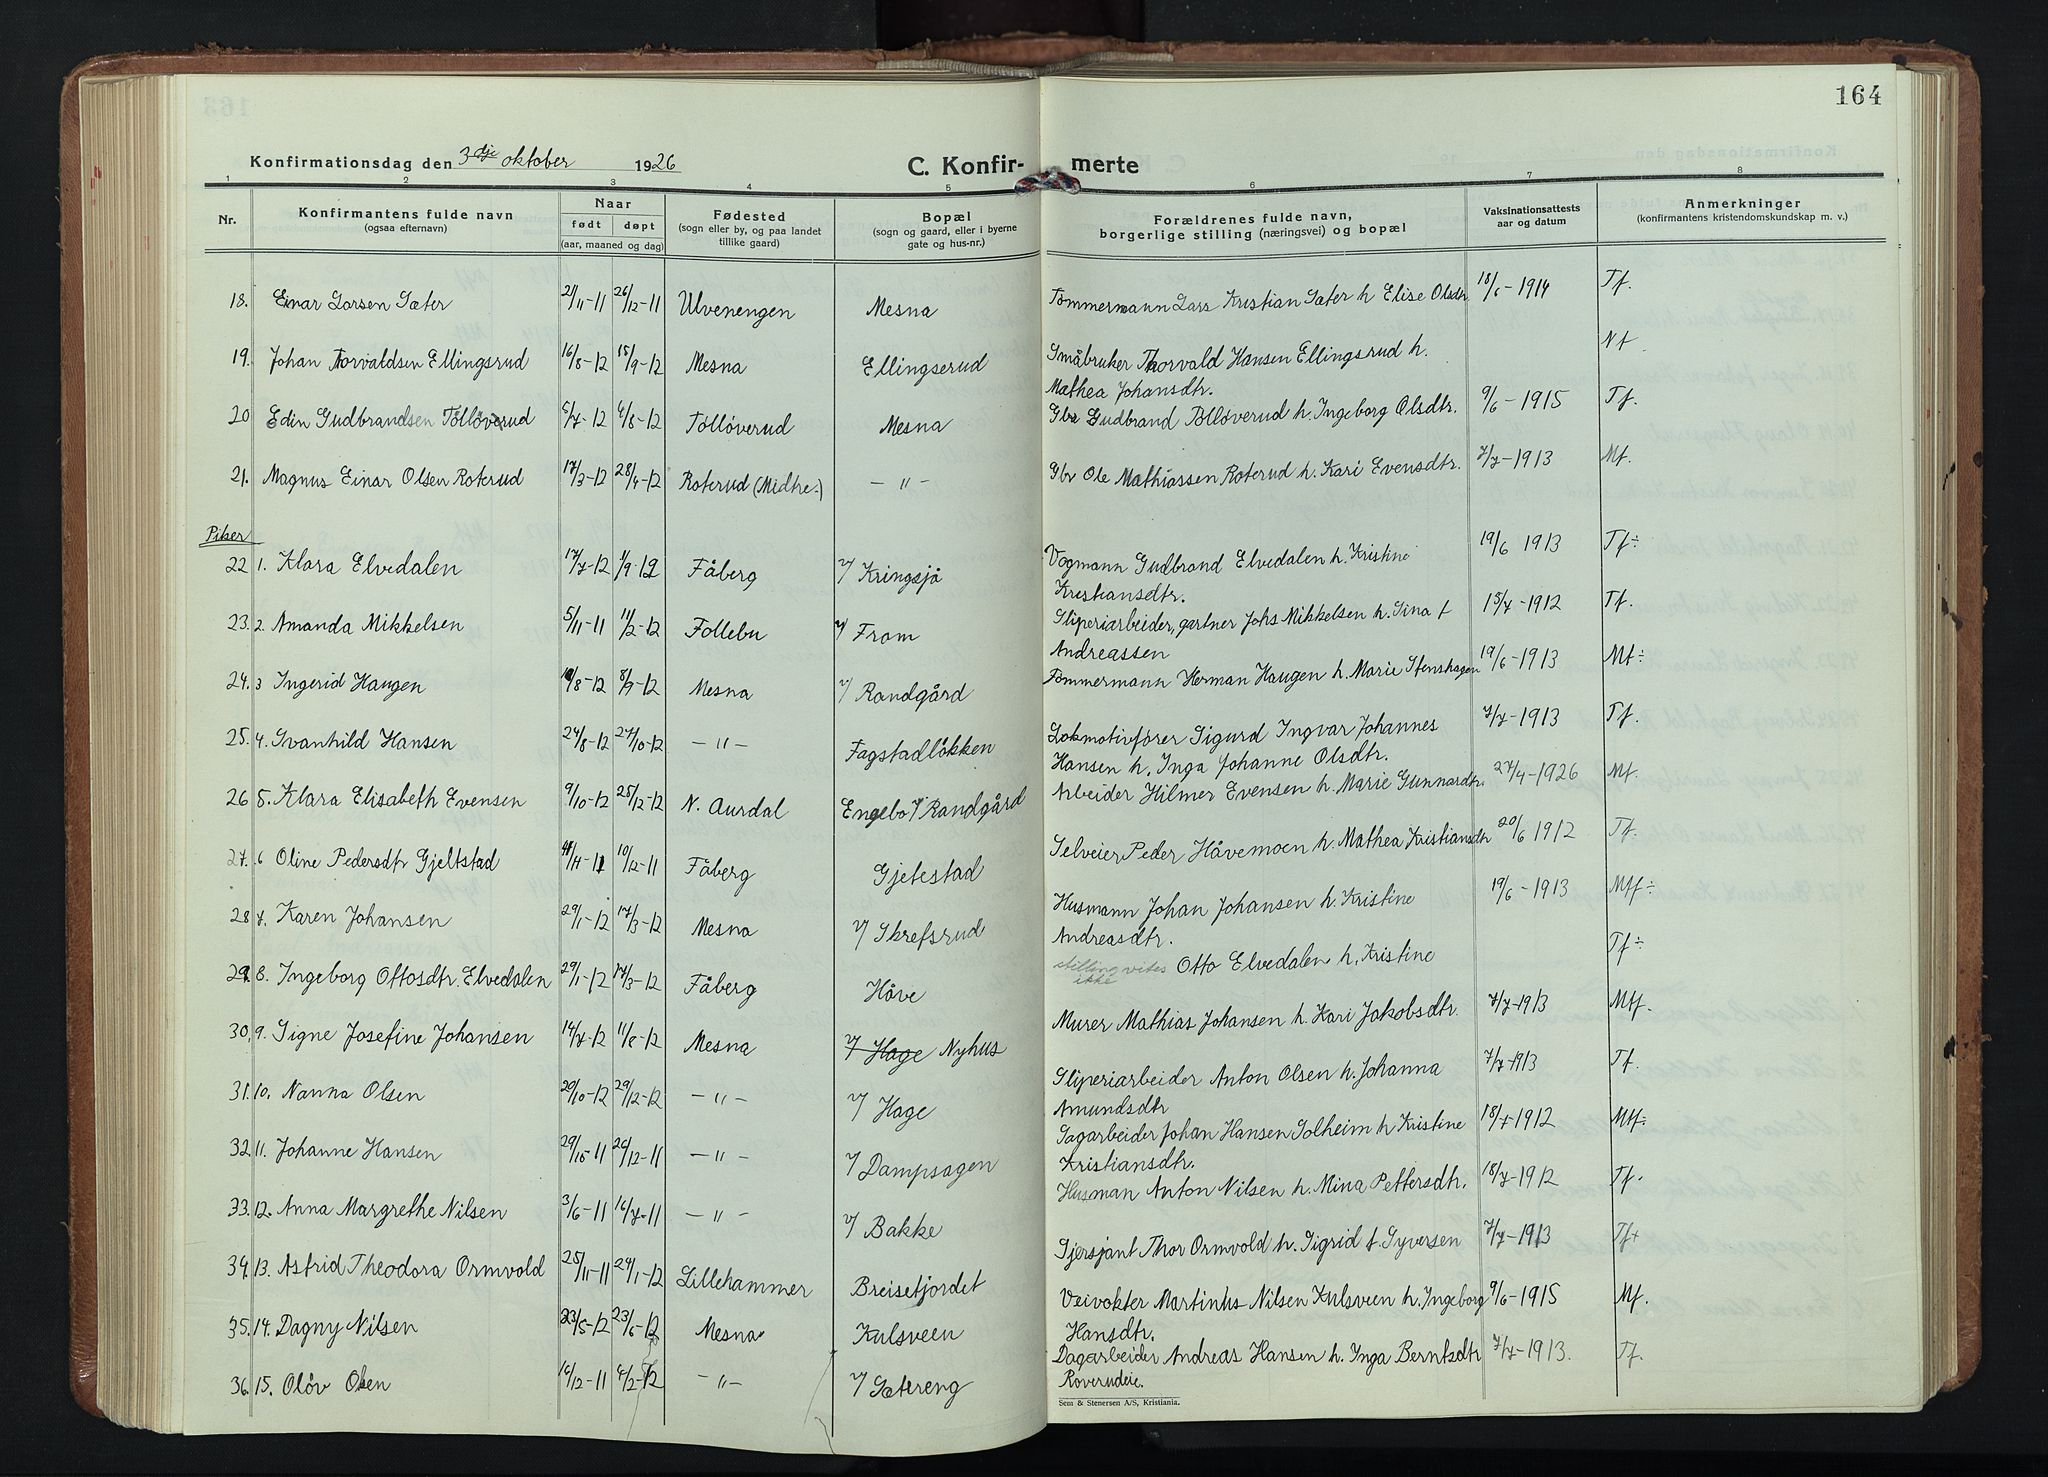 164
Konfirmationsdag den 3dje oktober 1926
C. Konfir- merte
1 2 3 4 5 6 7 8
Nr.
Konfirmantens fulde navn
(ogsaa efternavn)
Naar
født døpt
(aar, maaned og dag)
Fødested
(sogn eller by, og paa landet
tillike gaard)
Bopæl
(sogn og gaard, eller i byerne
gate og hus-nr.)
Forældrenes fulde navn,
borgerlige stilling (næringsvei) og bopæl
Vaksinationsattests
aar og datum
Anmerkninger
(konfirmantens kristendomskundskap m. v.)
18. Einar Larsen Sæter 21/11-11 26/12-11 Ulvenengen Mesna Tømmermann Lars Kristian Sæter h Elise Olsdtr 18/6-1914 Tf.
19. Johan Torvaldsen Ellingsrud 16/8-12 15/9-12 Mesna Ellingserud Småbruker Thorvald Hansen Ellingsrud h. Nf.
Mathea Johansdtr.
20 Edin Gudbrandsen Tölløverud 5/7-12 4/8-12 Tölløverud Mesna Gbr Gudbrand Tölløverud h. Ingeborg Olsdtr. 9/6-1915 Tf.
21. Magnus Einar Olsen Roterud 17/3-12 28/4-12 Roterud (Midtre.) -"- Gbr Ole Mathiassen Roterud h. Kari Evensdtr. 7/7-1913 Mf.
Piker
22 1. Klara Elvedalen 17/7-12 1/9-12 Fåberg v/ Kringsjå Vogmann Gudbrand Elvedalen h. Kristine 19/6 1913 Tf÷
Kristiansdtr.
23. 2. Amanda Mikkelsen 5/11-11 11/2-12 Follebu v/ From Sliperiarbeider, gartner Johs Mikkelsen h. Sina f 15/7-1912 Tf.
Andreassen
24. 3 Ingerid Haugen 10/8-12 8/9-12 Mesna v/ Randgård Tømmermann Herman Haugen h. Marie Stenshagen 19/6-1913 Mf÷
25. 4. Svanhild Hansen 24/8-12 27/10-12 -"- Fagstadløkken Lokmotivfører Sigurd Ingvar Johannes 7/7-1913 Tf.
Hansen h. Inga Johanne Olsdtr.
26 5. Klara Elisabeth Evensen 9/10-12 25/12-12 N. Aurdal Engebo v/ Randgård Arbeider Hilmer Evensen h. Marie Gunnardtr. 27/4-1926 Mf.
27. 6 Oline Pedersdtr Gjeltstad 4/11-11 10/12-11 Fåberg Gjetestad Selveier Peder Håvemoen h. Mathea Kristiansdtr 20/6 1912 Tf.
28 7. Karen Johansen 29/1-12 17/3-12 Mesna v/ Skrefsrud Husmann Johan Johansen h. Kristine 19/6-1913 Mff÷
Andreasdtr.
29. 8. Ingeborg Ottosdtr. Elvedalen 29/1-12 17/3-12 Fåberg Håve stilling vites ikke Otto Elvedalen h. Kristine Tf÷
30. 9. Signe Josefine Johansen 14/7-12 11/8-12 Mesna v/ Hage Nyhus Murer Mathias Johansen h. Kari Jakobsdtr. 7/7-1913 Mtf.
31. 10. Nanna Olsen 20/10-12 29/12-12 -"- v/ Hage Sliperiarbeider Anton Olsen h. Johanna 7/7-1913 Tf.
Amundsdtr
32 11. Johanne Hansen 29/10-11 26/12-11 -"- v/ Dampsagen Sagarbeider Johan Hansen Solheim h Kristine 18/7-1912 Mtf.
Kristiansdtr.
33. 12. Anna Margrethe Nilsen 3/6-11 16/7-11 -"- v/ Bakke Husman Anton Nilsen h. Mina Pettersdtr. 18/7-1912 Tf.
34. 13. Astrid Theodora Ormvold 25/11-11 29/1-12 Lillehammer Breisetjordet Sjersjant Thor Ormvold h. Sigrid f. Syversen 7/7-1913 Tf+
35. 14. Dagny Nilsen 23/5-12 23/6-12 Mesna Kulsveen Veivokter Martinus Nilsen Kulsveen h. Ingeborg 9/6-1915 Mf.
Hansdtr.
36. 15. Oløv Olsen 16/12-11 4/2-12 -"- v/ Sætereng Dagarbeider Andreas Hansen h. Inga Berntsdtr 7/7-1913. Tf.
Roverudeie.
Sem & Stenersen A/S, Kristiania.